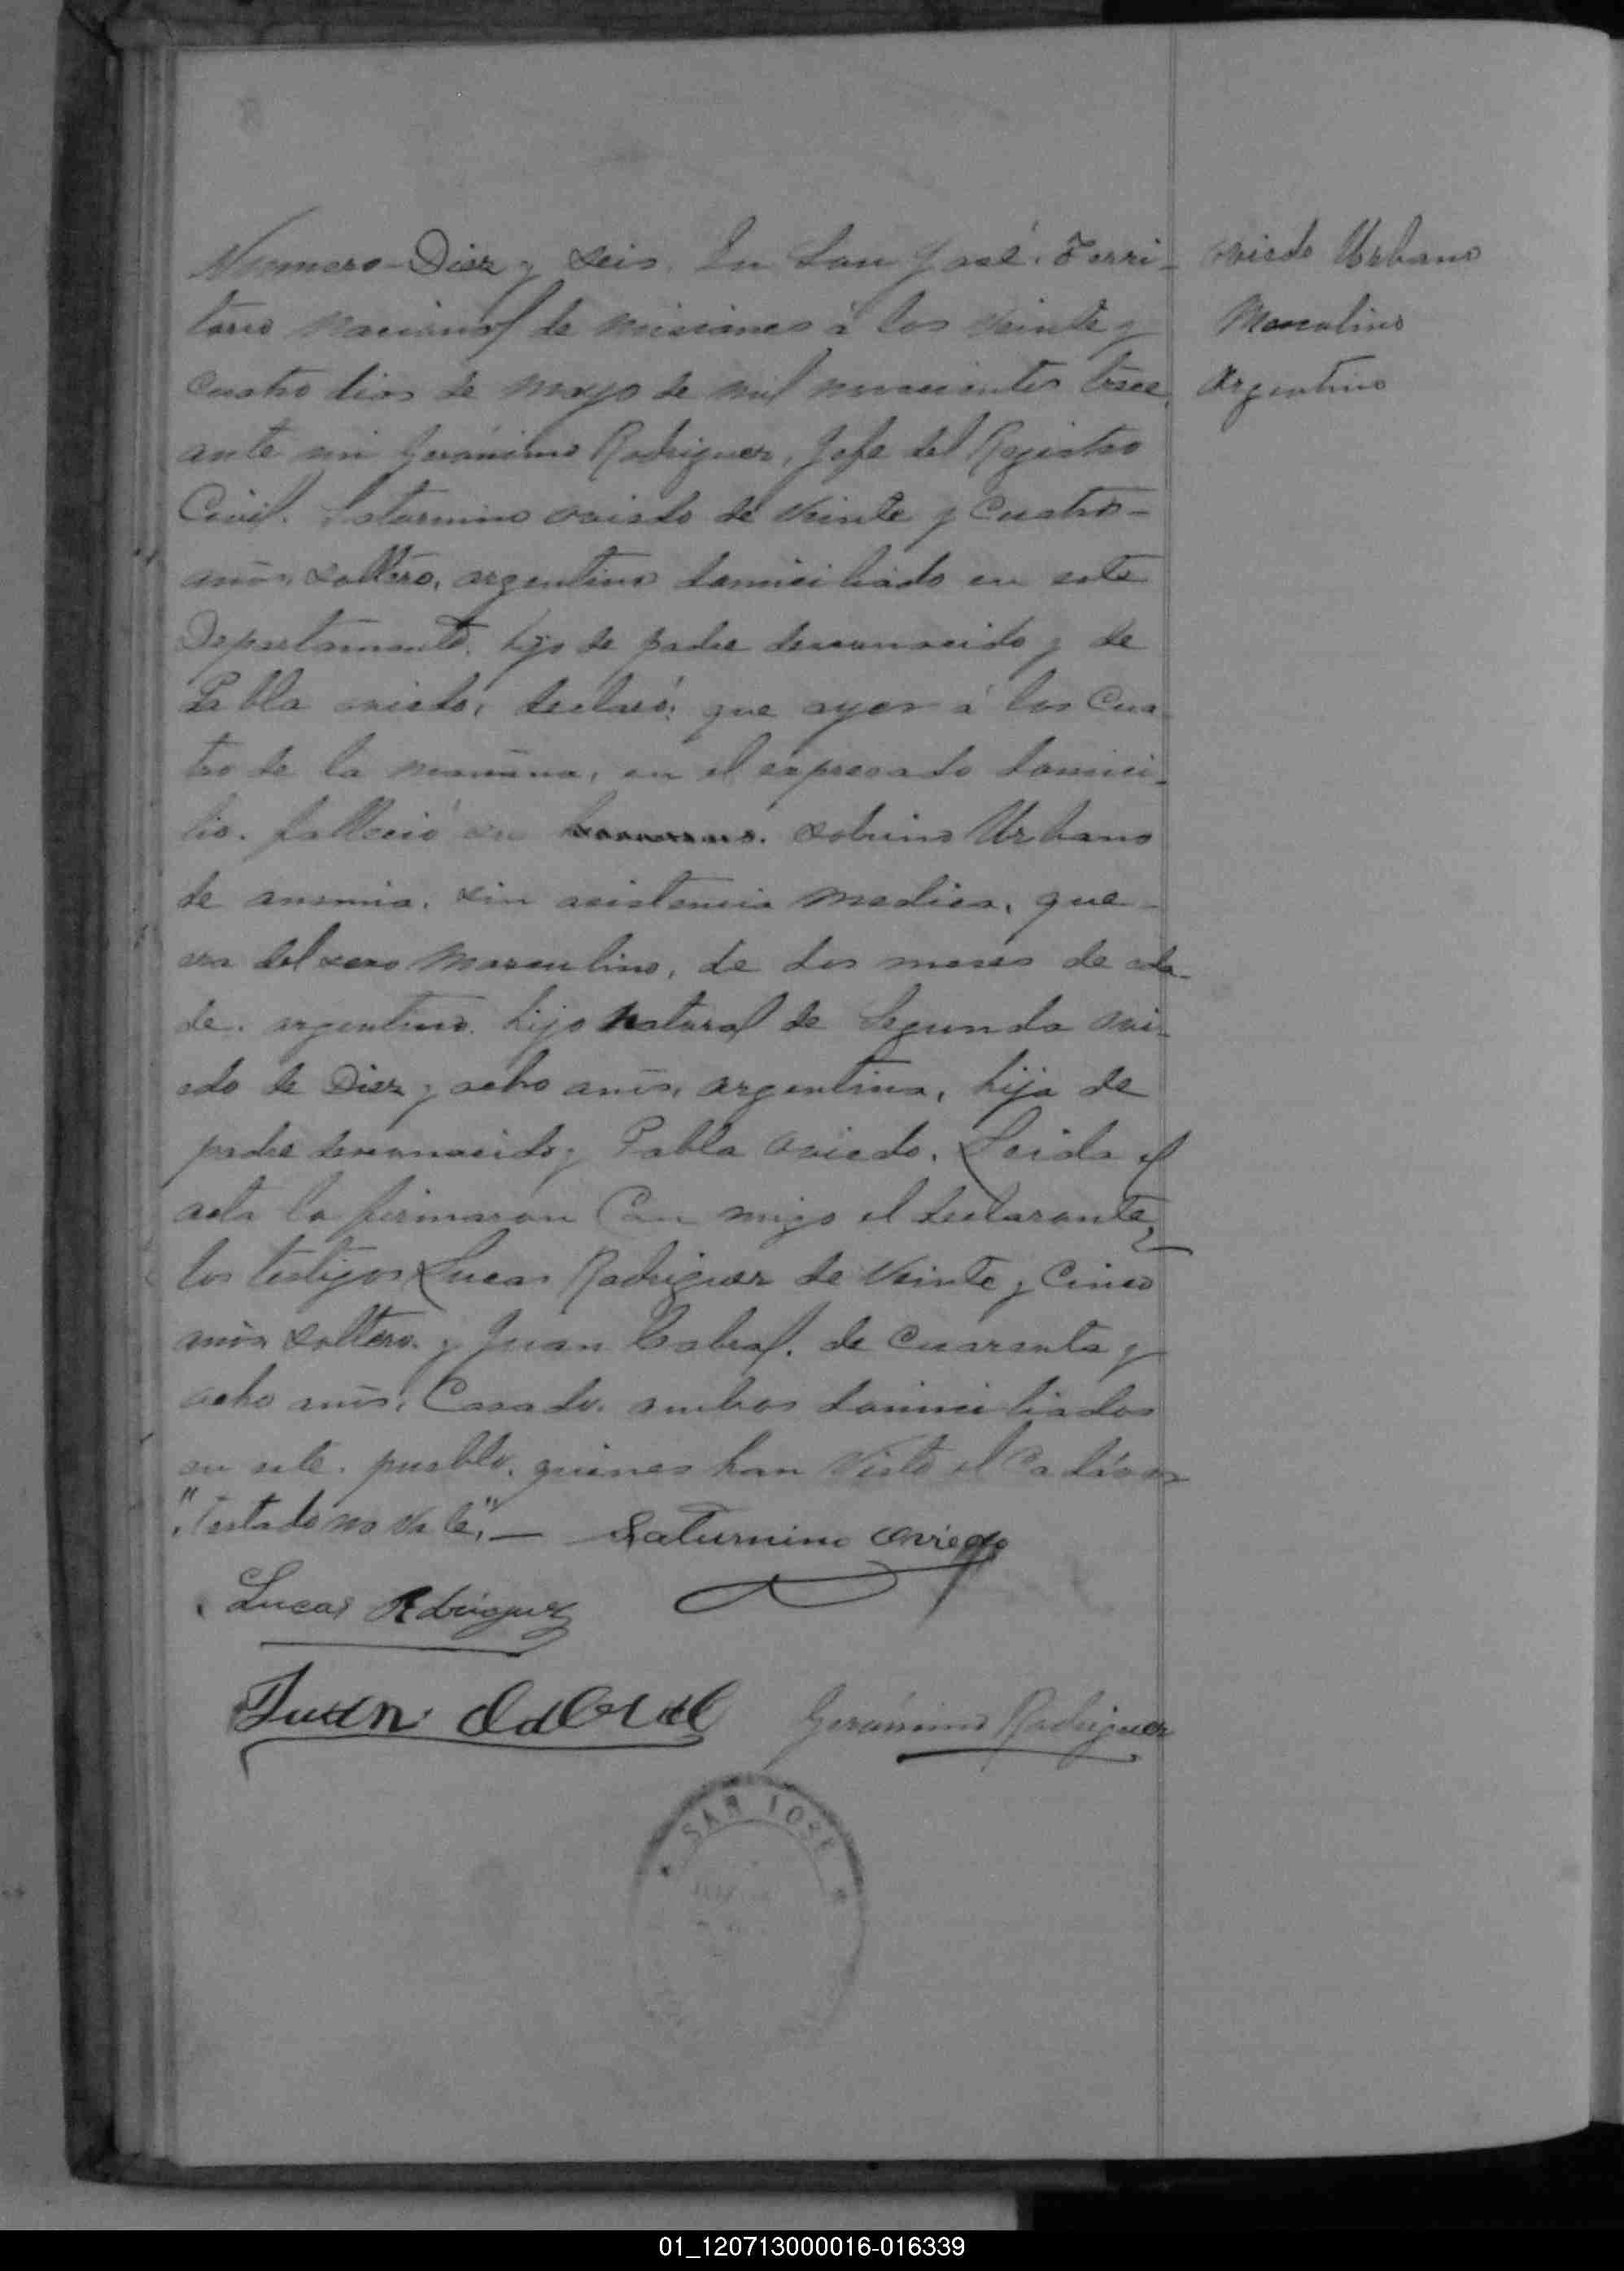 Numero Diez y seis. En San José. Terri-
torio nacional de misiones á los veinte y
cuatro dias de mayo de mil novecientos trece,
ante mi Gerónimo Rodriguez, Jefe del Rejistro
Civil. Saturnino oviedo de veinte y cuatro-
años, soltero, argentino domiciliado en este
Departamento, hijo de padre desconocido y de
Pabla oviedo, declaró: que ayer á las Cua-
tro de la mañana, en el expresado domici-
lio. falleció su sobrino Urbano
de anemia. sin asistencia medica, que-
era del sexo masculino, de dos meses de eda-
de. argentino. hijo natural de Segunda Ovi-
edo de Diez y ocho años, argentina, hija de
padre desconocido y Pabla oviedo. Leida el
acta la firmaron Con migo el declarante y
los testigos Lucas Rodriguez de veinte y Cinco
años soltero. y Juan Cabral. de Cuarenta y
ocho años, Casado. ambos domiciliados
en este. pueblo. quienes han visto el Cadáver
"Testado no vale".— Saturnino Oviedo
Lucas Rdriguez
Juan Cabral Gerónimo Rodriguez
SAN JOSE
oviedo Urbano
Masculino
Argentino
01_120713000016-016339